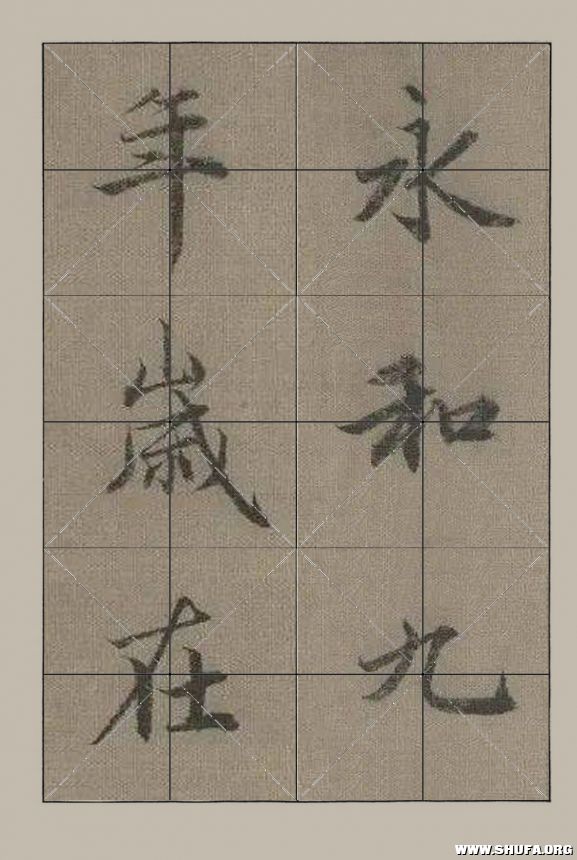 永和九
年歲在
WWW.SHUFA.ORG